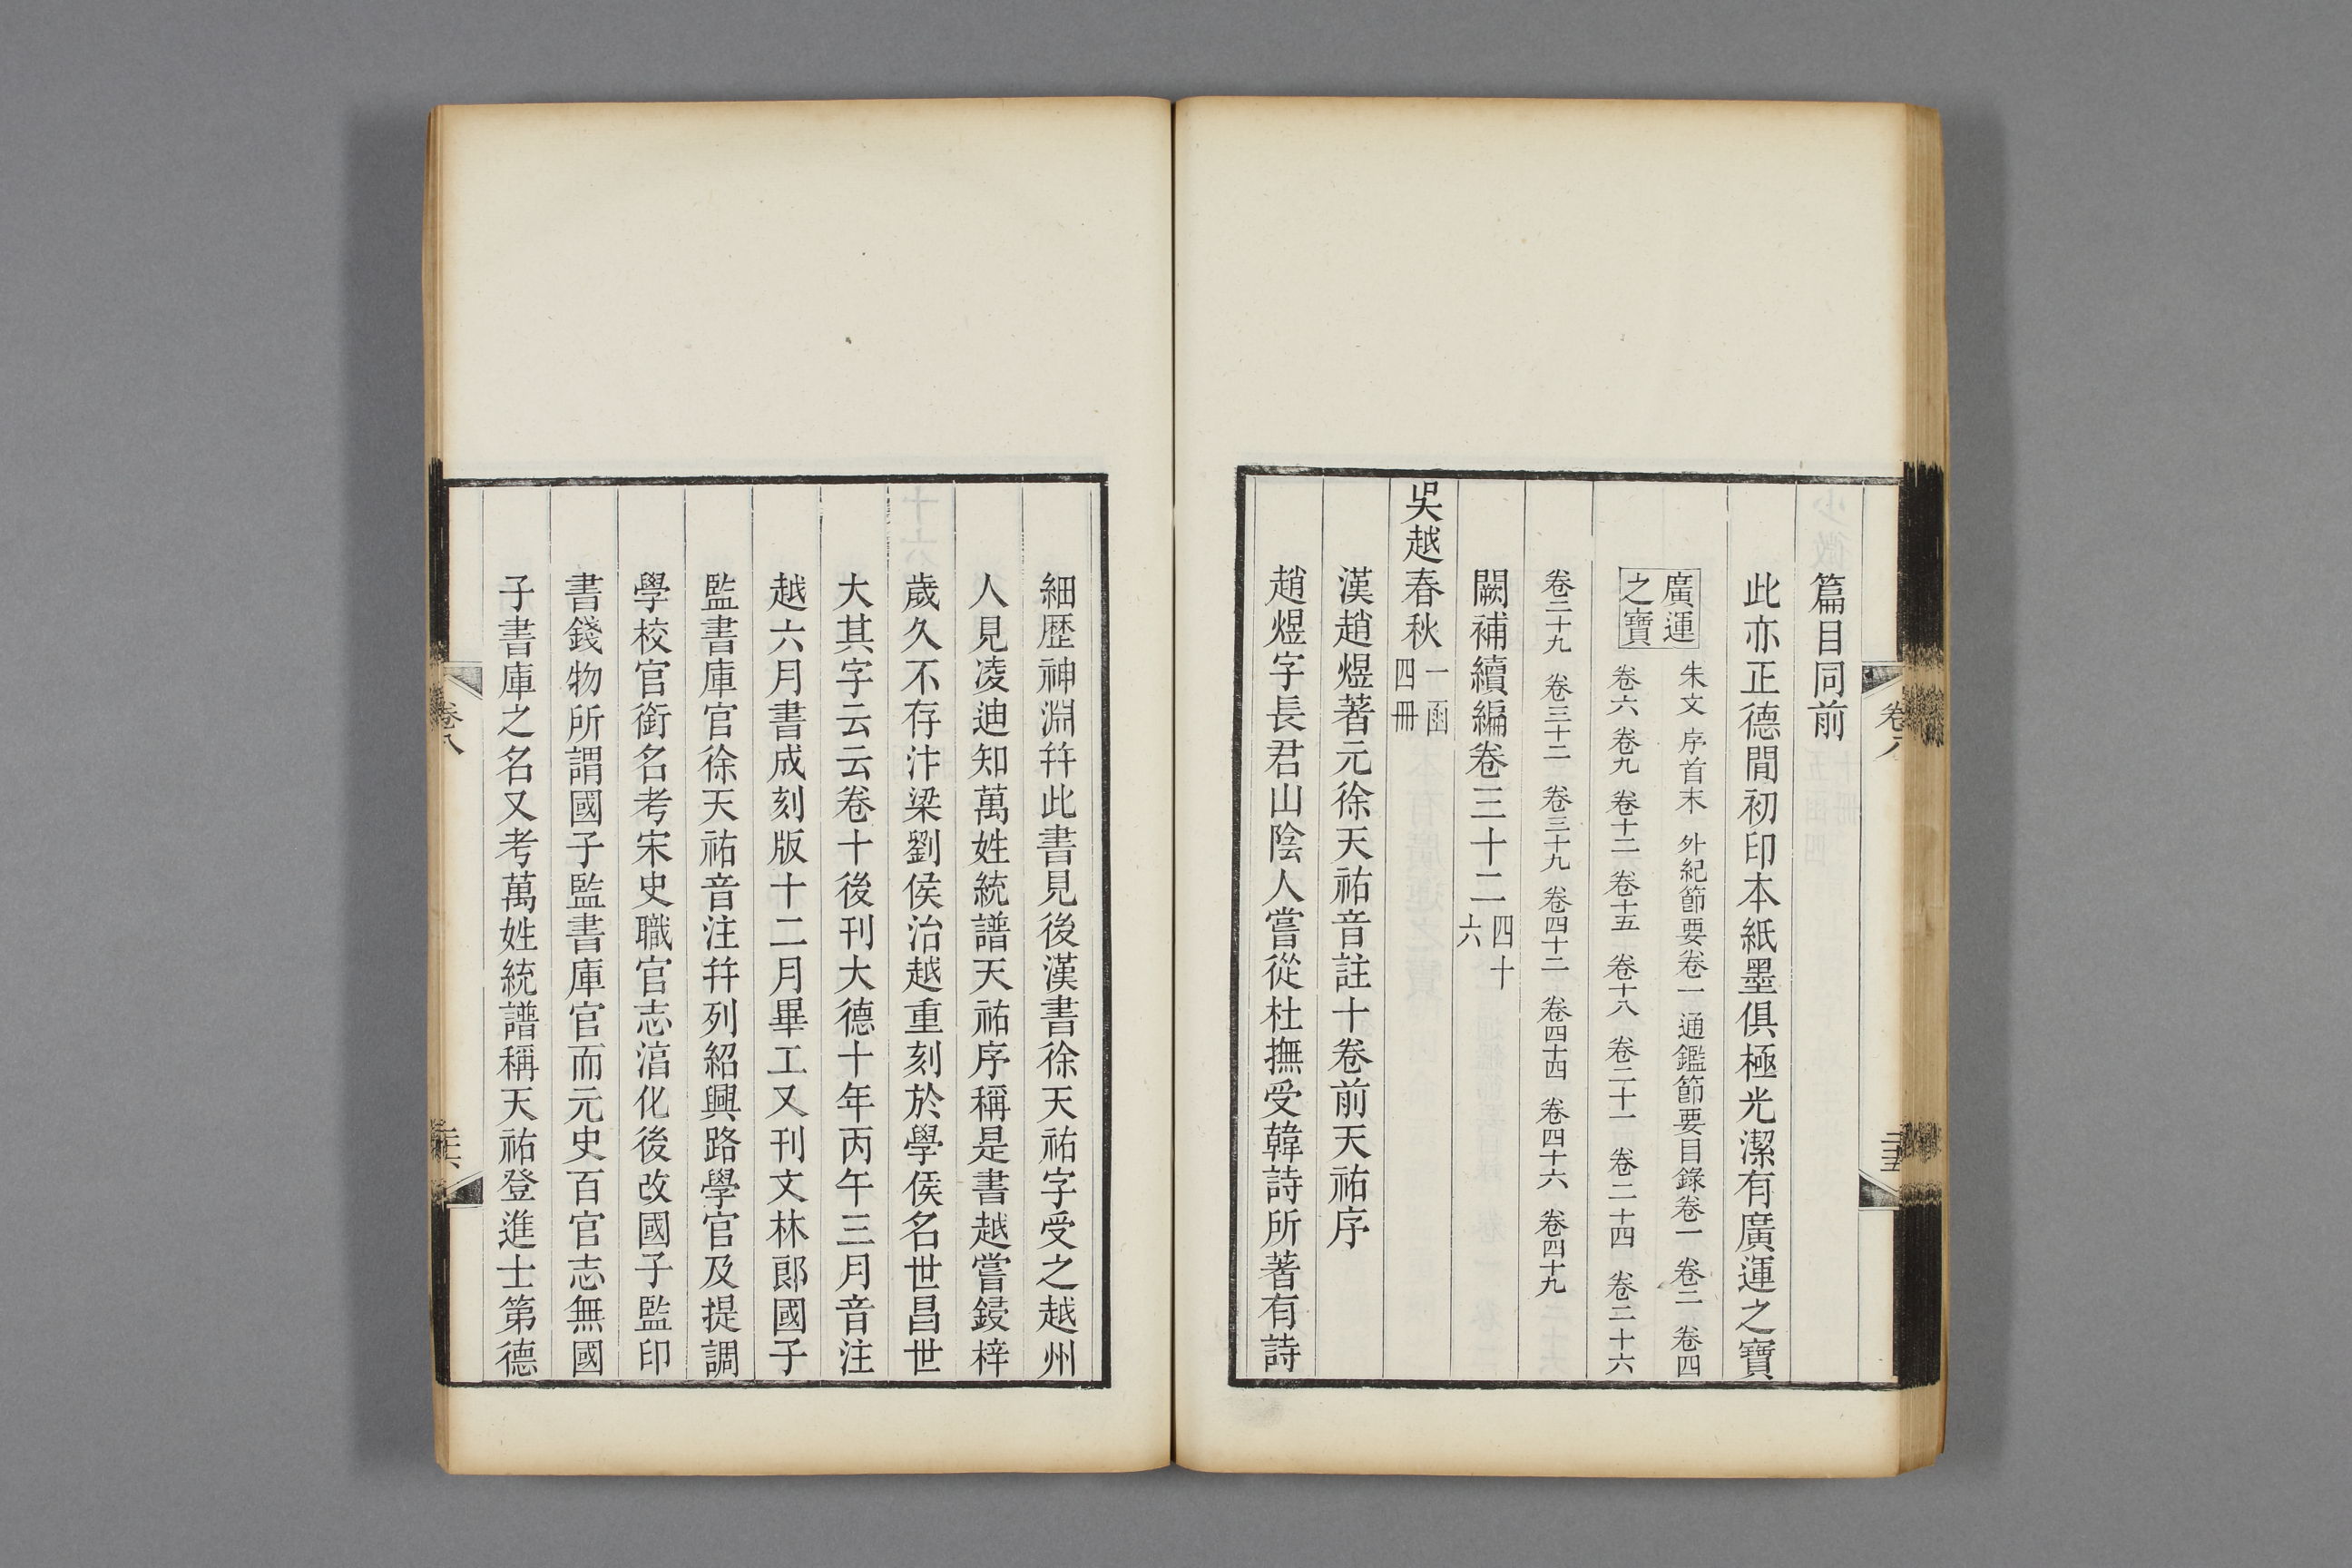 篇目同前
此亦正德間初印本紙墨俱極光潔有廣運之寶
廣運之寶
朱文 序首末 外紀節要卷一 通鑑節要目錄卷一 卷二 卷四
卷六 卷九 卷十二 卷十五 卷十八 卷二十一 卷二十四 卷二十六
卷二十九 卷三十二 卷三十九 卷四十二 卷四十四 卷四十六 卷四十九
闕補續編卷三十二 四十六
吳越春秋 一函四冊
漢趙煜著元徐天祐音註十卷前天祐序
趙煜字長君山陰人嘗從杜撫受韓詩所著有詩
卷八
二十五
細歷神淵幷此書見後漢書徐天祐字受之越州
人見凌迪知萬姓統譜天祐序稱是書越嘗鋟梓
歲久不存汴梁劉侯治越重刻於學侯名世昌世
大其字云云卷十後刊大德十年丙午三月音注
越六月書成刻版十二月畢工又刊文林郎國子
監書庫官徐天祐音注幷列紹興路學官及提調
學校官銜名考宋史職官志淳化後改國子監印
書錢物所謂國子監書庫官而元史百官志無國
子書庫之名又考萬姓統譜稱天祐登進士第德
卷八
二十六